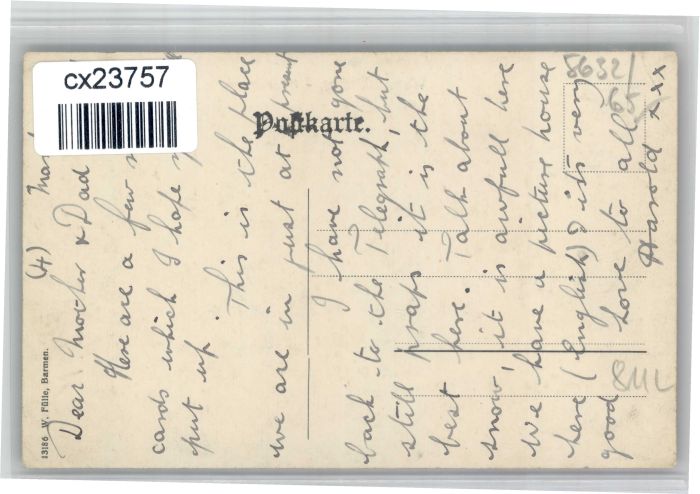 cx23757
Postkarte.
13186 W. Fülle, Barmen.
5632/
65
8111L
(4) Mar
Dear Mother & Dad
Here are a few
cards which I hope
put up.
This is the place
we are in just at present
I have not gone
back to the Telegraph, but
still praps it is the
best here. Talk about
snow, it is awfull here
We have a picture house
here (English) & its very
good Love to all
Harold xxx